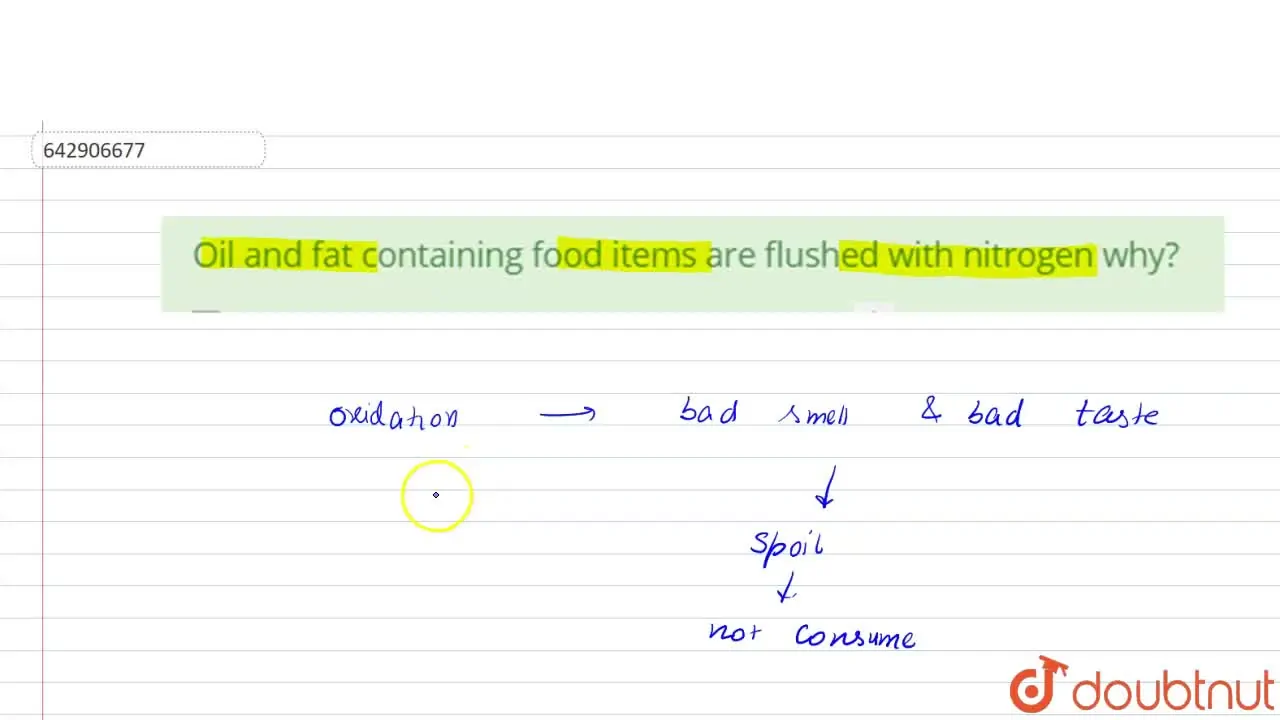 642906677
Oil and fat containing food items are flushed with nitrogen why?
oxidation → bad smell & bad taste
↓
Spoil
↓
not consume
doubtnut